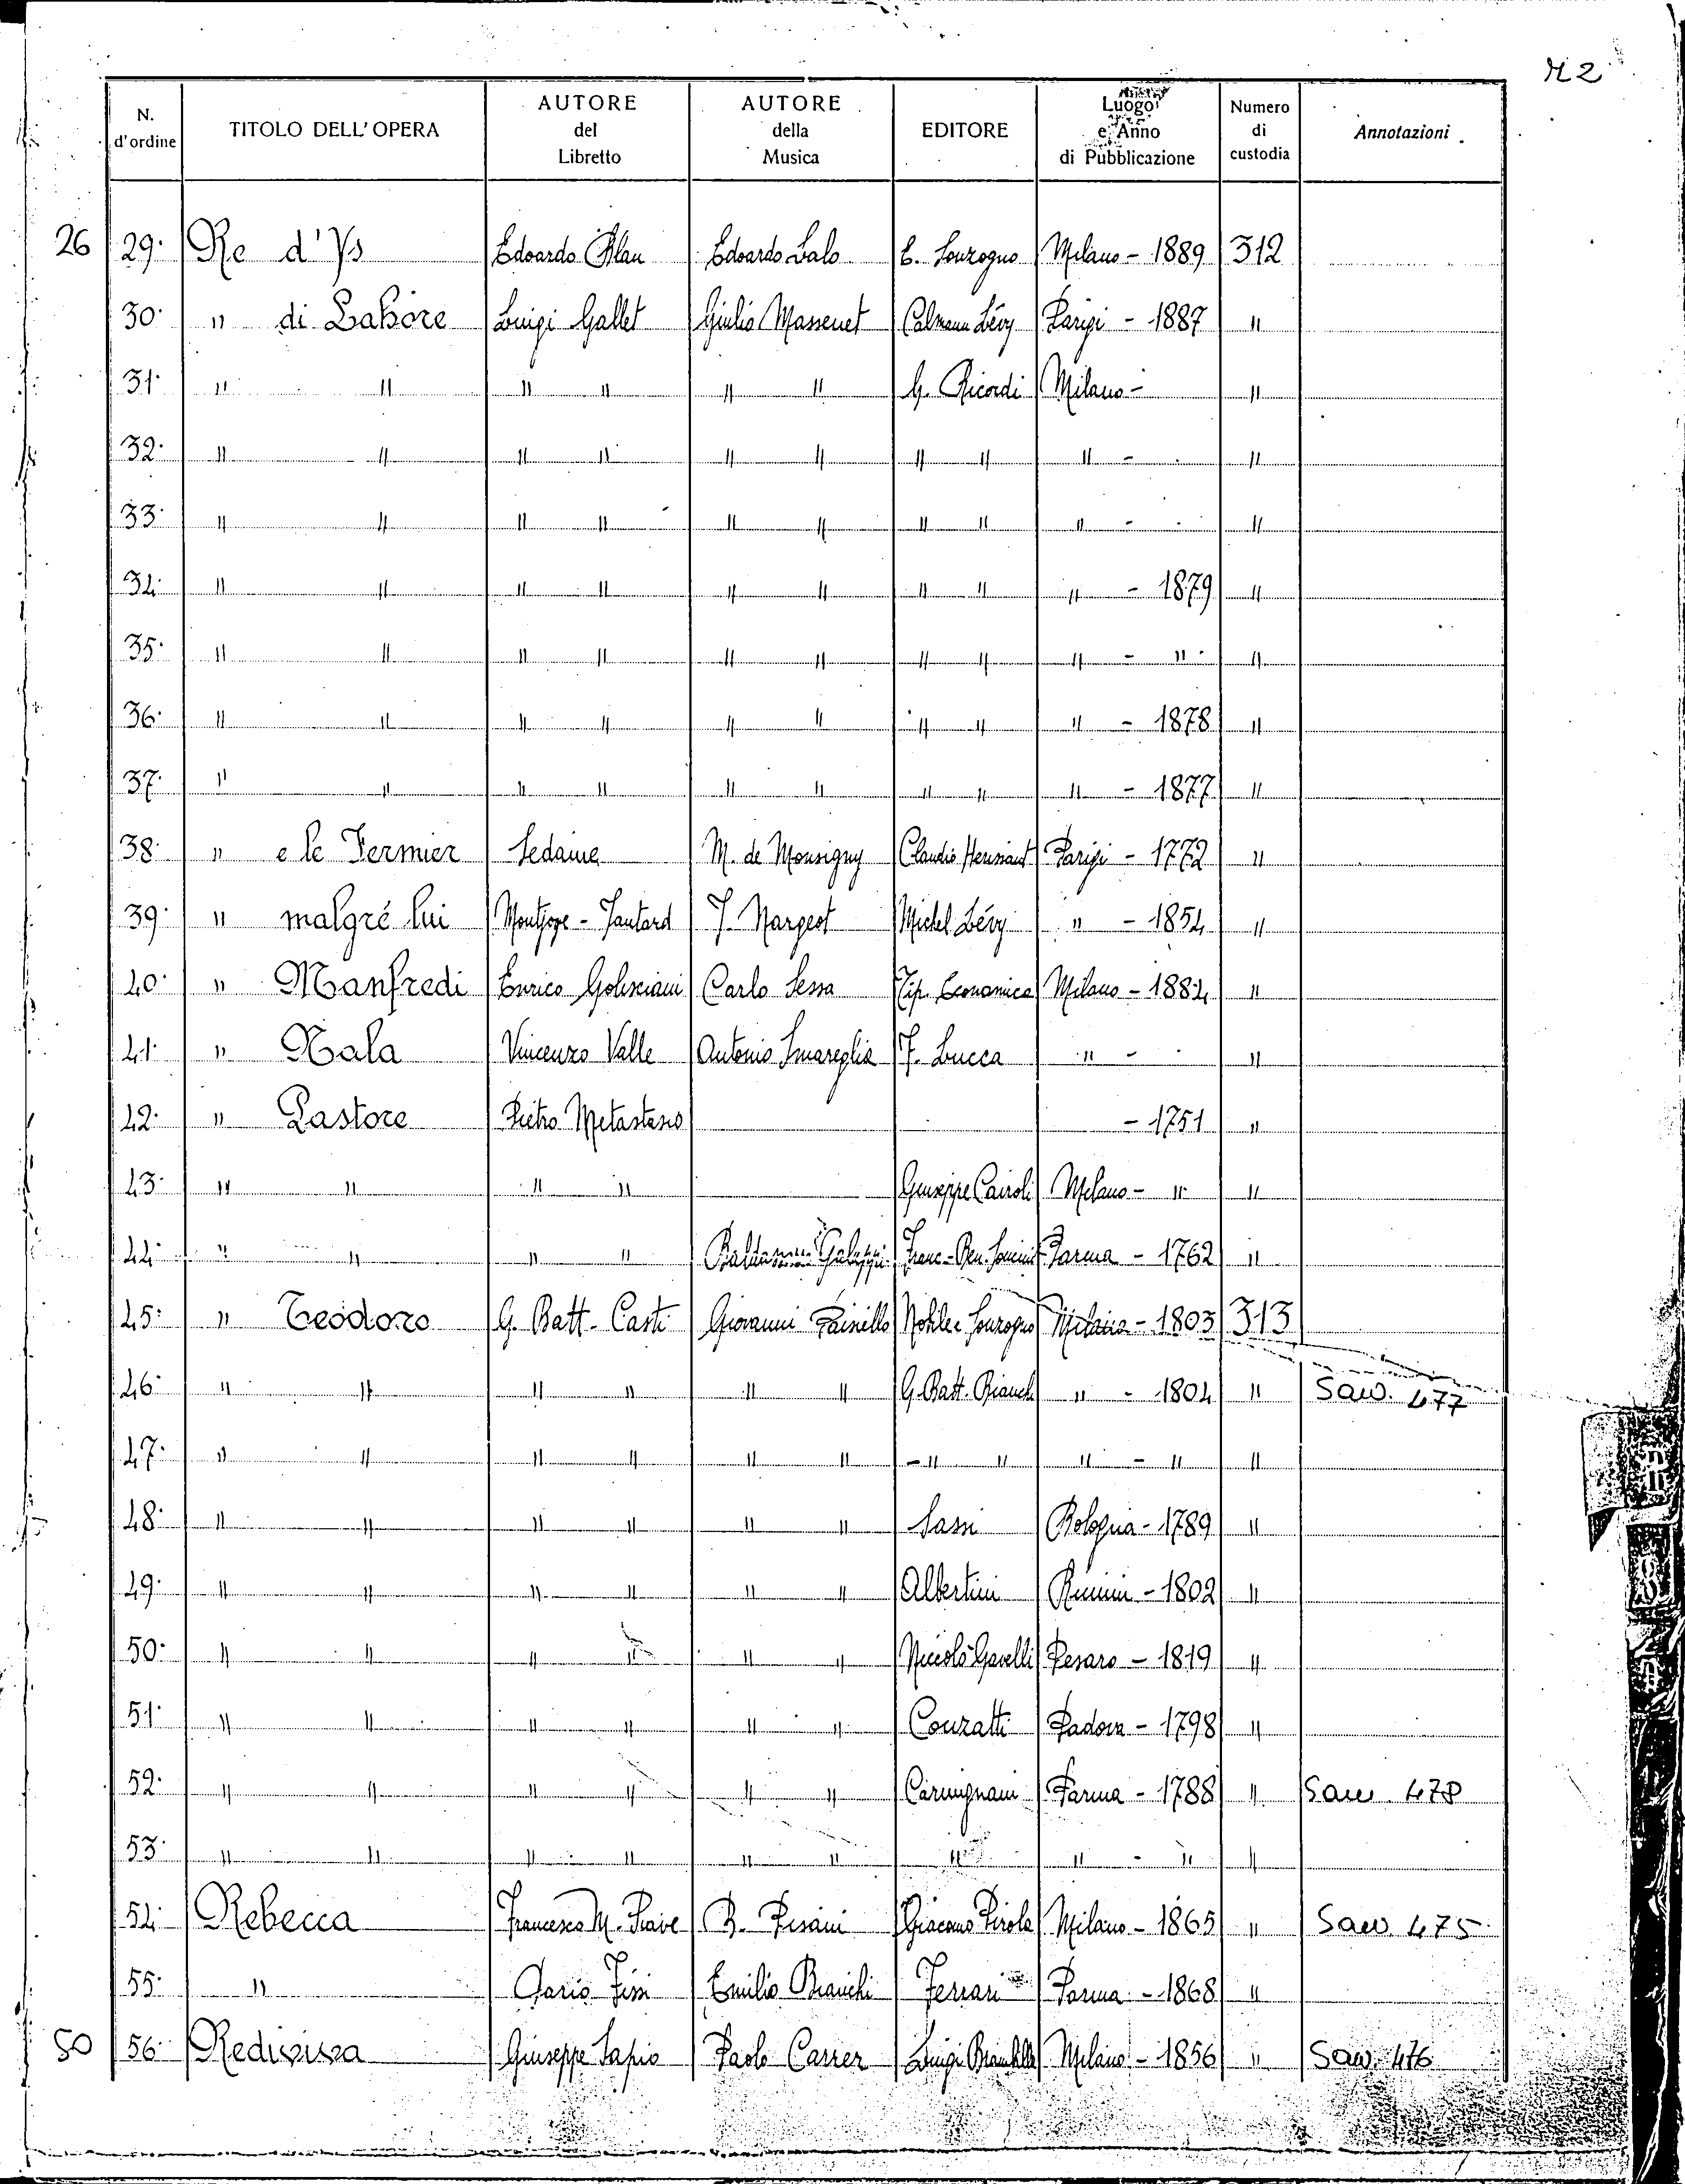 R 2
N. d'ordine | TITOLO DELL'OPERA | AUTORE del Libretto | AUTORE della Musica | EDITORE | Luogo e Anno di Pubblicazione | Numero di custodia | Annotazioni
26 | 29. | Re d'Ys | Edoardo Blau | Edoardo Lalo | E. Sonzogno | Milano - 1889 | 312
30. | " di Lahore | Luigi Gallet | Giulio Massenet | Calmann Lévy | Parigi - 1887 | "
31. | " " | " " | " " | G. Ricordi | Milano - | "
32. | " " | " " | " " | " " | " - | "
33. | " " | " " | " " | " " | " - | "
34. | " " | " " | " " | " " | " - 1879 | "
35. | " " | " " | " " | " " | " - " | "
36. | " " | " " | " " | " " | " - 1878 | "
37. | " " | " " | " " | " " | " - 1877 | "
38. | " e le Fermier | Sedaine | M. de Monsigny | Claudio Herissant | Parigi - 1772 | "
39. | " malgré lui | J. Nargeot | Michel Lévy | " - 1854 | "
40. | " Manfredi | Enrico Golisciani | Carlo Sessa | Tip. Economica | Milano - 1884 | "
41. | " Nala | Vincenzo Valle | Antonio Smareglia | F. Lucca | " - | "
42. | " Pastore | Pietro Metastasio | - 1751 | "
43. | " " | " " | Giuseppe Cairoli | Milano - " | "
44. | " " | " " | Galuppi | Parma - 1762 | "
45. | " Teodoro | G. Batt. Casti | Giovanni Paisiello | Nobile e Sonzogno | Milano - 1803 | 313
46. | " " | " " | " " | G. Batt. Bianchi | " - 1804 | " | Saw. 477
47. | " " | " " | " " | - " " | " - " | "
48. | " " | " " | " " | Sassi | Bologna - 1789 | "
49. | " " | " " | " " | Albertini | Rimini - 1802 | "
50. | " " | " " | " " | Niccolò Gavelli | Pesaro - 1819 | "
51. | " " | " " | " " | Conzatti | Padova - 1798 | "
52. | " " | " " | " " | Carmignani | Parma - 1788 | " | Saw 478
53. | " " | " " | " " | " | " - " | "
54. | Rebecca | Francesco M. Piave | B. Pisani | Giacomo Pirola | Milano - 1865 | " | Saw. 475
55. | " | Dario Fissi | Emilio Bianchi | Ferrari | Parma - 1868 | "
50 | 56. | Rediviva | Giuseppe Sapio | Paolo Carrer | Luigi Brambilla | Milano - 1856 | " | Saw. 476